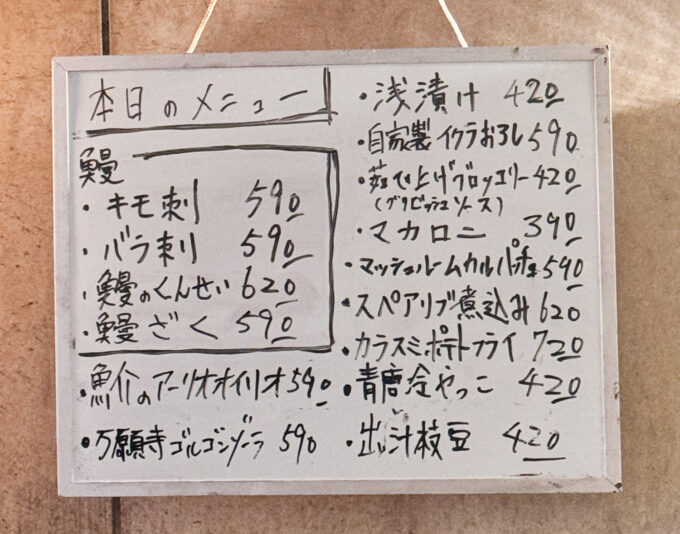 本日のメニュー
鰻
・キモ刺 590
・バラ刺 590
・鰻のくんせい 620
・鰻ざく 590
・魚介のアーリオオイリオ 590
・万願寺ゴルゴンゾーラ 590
・浅漬け 420
・自家製イクラおろし 590
・茹で上げブロッコリー 420
(グリビッシュソース)
・マカロニ 390
・マッシュルームカルパッチョ 590
・スペアリブ煮込み 620
・カラスミポテトフライ 720
・青唐冷やっこ 420
・出し汁枝豆 420